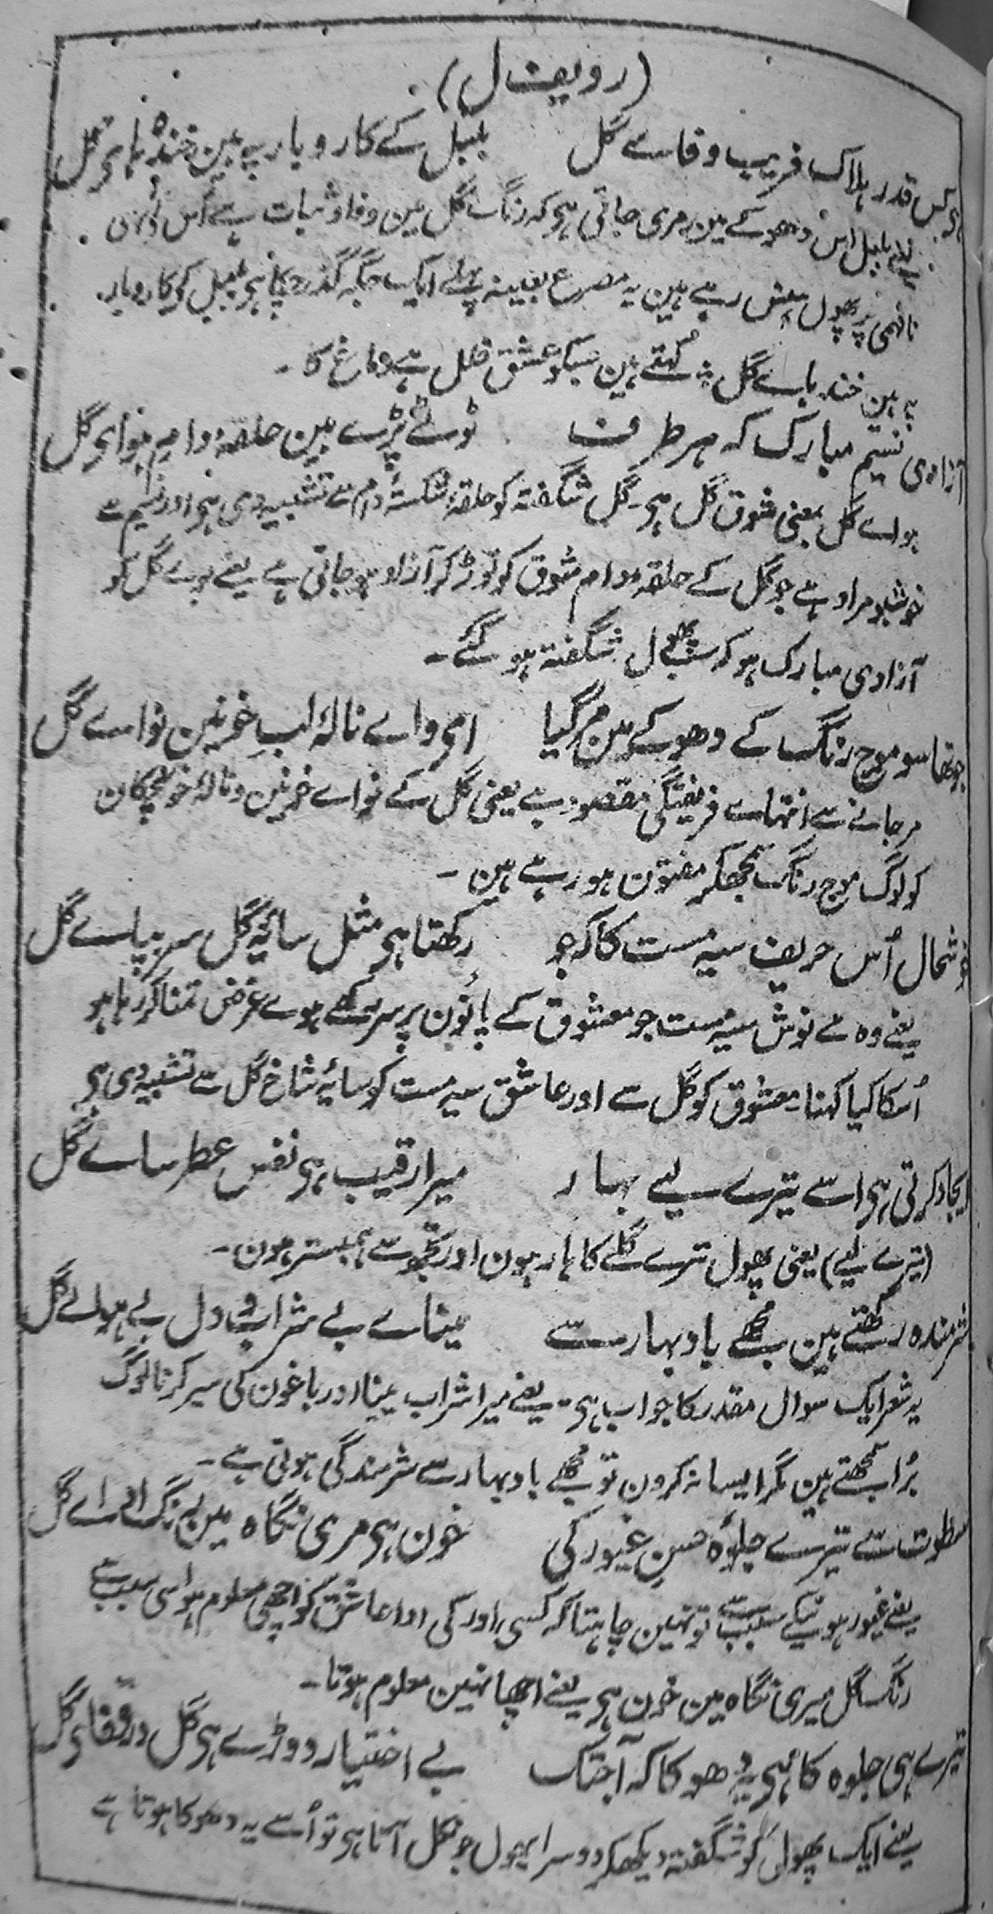 (ردیف ل)
ہی کس قدر ہلاک فریب وفاے گل بلبل کے کاروبار پہ ہین خندہ ہای گل
یعنے بلبل اس دھوکے مین مری جاتی ہی کہ رنگ گل مین وفا و ثبات ہے اُس کی
نافہمی پر پھول ہنس رہے ہین یہ مصرع بعینہ پہلے ایک جگہ گذر چکا ہی بلبل کو کاروبار
پہ ہین خندہاے گل ؞ کہتے ہین جسکو عشق خلل ہے دماغ کا ۔
آزادی نسیم مبارک کہ ہر طرف ٹوٹے پڑے ہین حلقۂ دام ہوای گل
ہواے گل بمعنی شوق گل ہی ۔ گل شگفتہ کو حلقۂ شکستۂ دام سے تشبیہ دی ہی اور نسیم سے
خوشبو مراد ہے جو گل کے حلقۂ دام شوق کو توڑ کر آزاد ہو جاتی ہے یعنے بوے گل کو
آزادی مبارک ہو کہ سب پھول شگفتہ ہو گئے ۔
جو تھا سو موج رنگ کے دھوکے مین مر گیا ای واے نالۂ لب خونین نواے گل
مرجانے سے انتہاے فریفتگی مقصود ہے یعنی گل کے نواے خونین و نالۂ خونچکان
کو لوگ موج رنگ سمجھکر مفتون ہو رہے ہین ۔
خوشحال اُس حریف سیہ مست کا کہ جو رکھتا ہی مثل سایۂ گل سر بپاے گل
یعنے وہ مے نوش سیہ مست جو معشوق کے پاؤن پر سر رکھے ہوے عرض تمنا کر رہا ہو
اُسکا کیا کہنا ۔ معشوق کو گل سے اور عاشق سیہ مست کو سایۂ شاخ گل سے تشبیہ دی ہی
ایجاد کرتی ہی اسے تیرے لیے بہار میرا رقیب ہی نفس عطر ساے گل
(تیرے لیے) یعنی پھول تیرے گلے کا ہار ہون اور تجھ سے ہمبستر ہون ۔
شرمندہ رکھتے ہین مجھے باد بہار سے میناے بے شراب و دل بے ہواے گل
یہ شعر ایک سوال مقدر کا جواب ہی ۔ یعنے میرا شراب پینا اور باغون کی سیر کرنا لوگ
بُرا سمجھتے ہین مگر ایسا نہ کرون تو مجھے باد بہار سے شرمندگی ہوتی ہے ۔
سطوت سے تیرے جلوۂ حسن غیور کی خون ہی مری نگاہ مین رنگ اداے گل
یعنے غیور ہونیکے سبب سے تو نہین چاہتا کہ کسی اور کی ادا عاشق کو اچھی معلوم ہو اسی سبب سے
رنگ گل میری نگاہ مین خون ہی یعنے اچھا نہین معلوم ہوتا ۔
تیرے ہی جلوہ کا ہی یہ دھوکا کہ آجتک بے اختیار دوڑے ہی گل در قفای گل
یعنے ایک پھول کو شگفتہ دیکھکر دوسرا پھول جو کھل آتا ہی تو اُسے یہ دھوکا ہوتا ہے